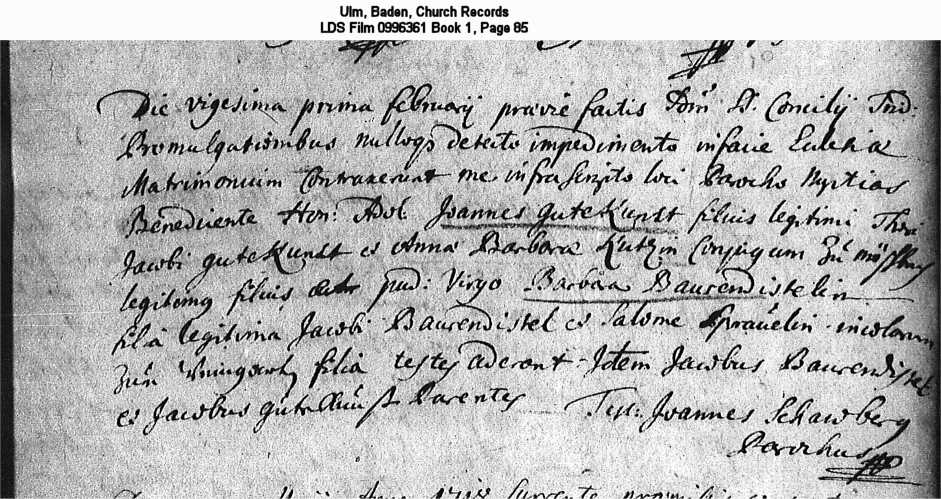 Ulm, Baden, Church Records
LDS Film 0996361 Book 1, Page 85
Die vigesima prima februarij prævie factis Dom̄ S. Concilij Trid:
Promulgationibus nulloqs detecto impedimento in facie Ecclesiæ
Matrimonium Contraxerunt me infrascripto loci Parocho Nuptias
Benediciente Hon: Adol. Joannes gutekunst filius legitimi
Jacobi gutekunst et Anna Barbara Kutzin Conjugum Zu
legitimg filius pud: Virgo Barbara Baurendistelin
filia legitima Jacobi Baurendistel et Salome incolarum
Zu filia testes aderant Item Jacobus Baurendistel
et Jacobus gutekunst Parentes Test: Joannes Schawberg
Parochus